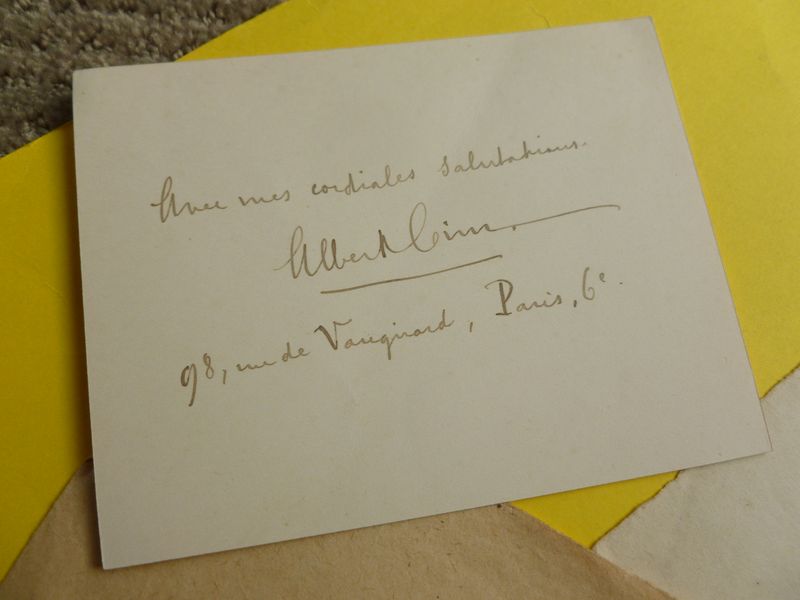 Avec mes cordiales salutations.
Albert Cim.
98, rue de Vaugirard, Paris, 6e.